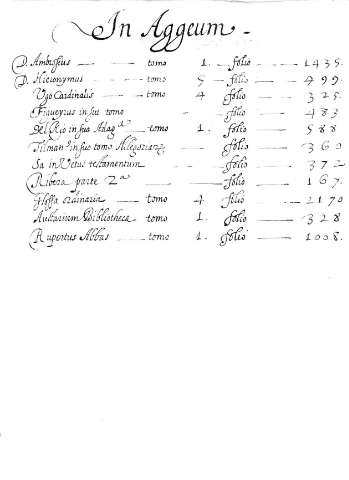 In Aggeum
D. Ambrosius tomo 1. folio 1435.
D. Hieronymus tomo 5 folio 499.
Ugo Cardinalis tomo 4 folio 325.
Figueyrus in suo tomo folio 483
Del Rio in suo Adag.ª tomo 1. folio 588
Tilman in suo tomo Allegoriarz folio 360
Sa in Vetus testamentum folio 372
Ribera parte 2ª folio 167.
Glossa ordinaria tomo 4 folio 2170
Auctarium Bibliotheca tomo 1. folio 328
Rupertus Abbas tomo 1. folio 1008.